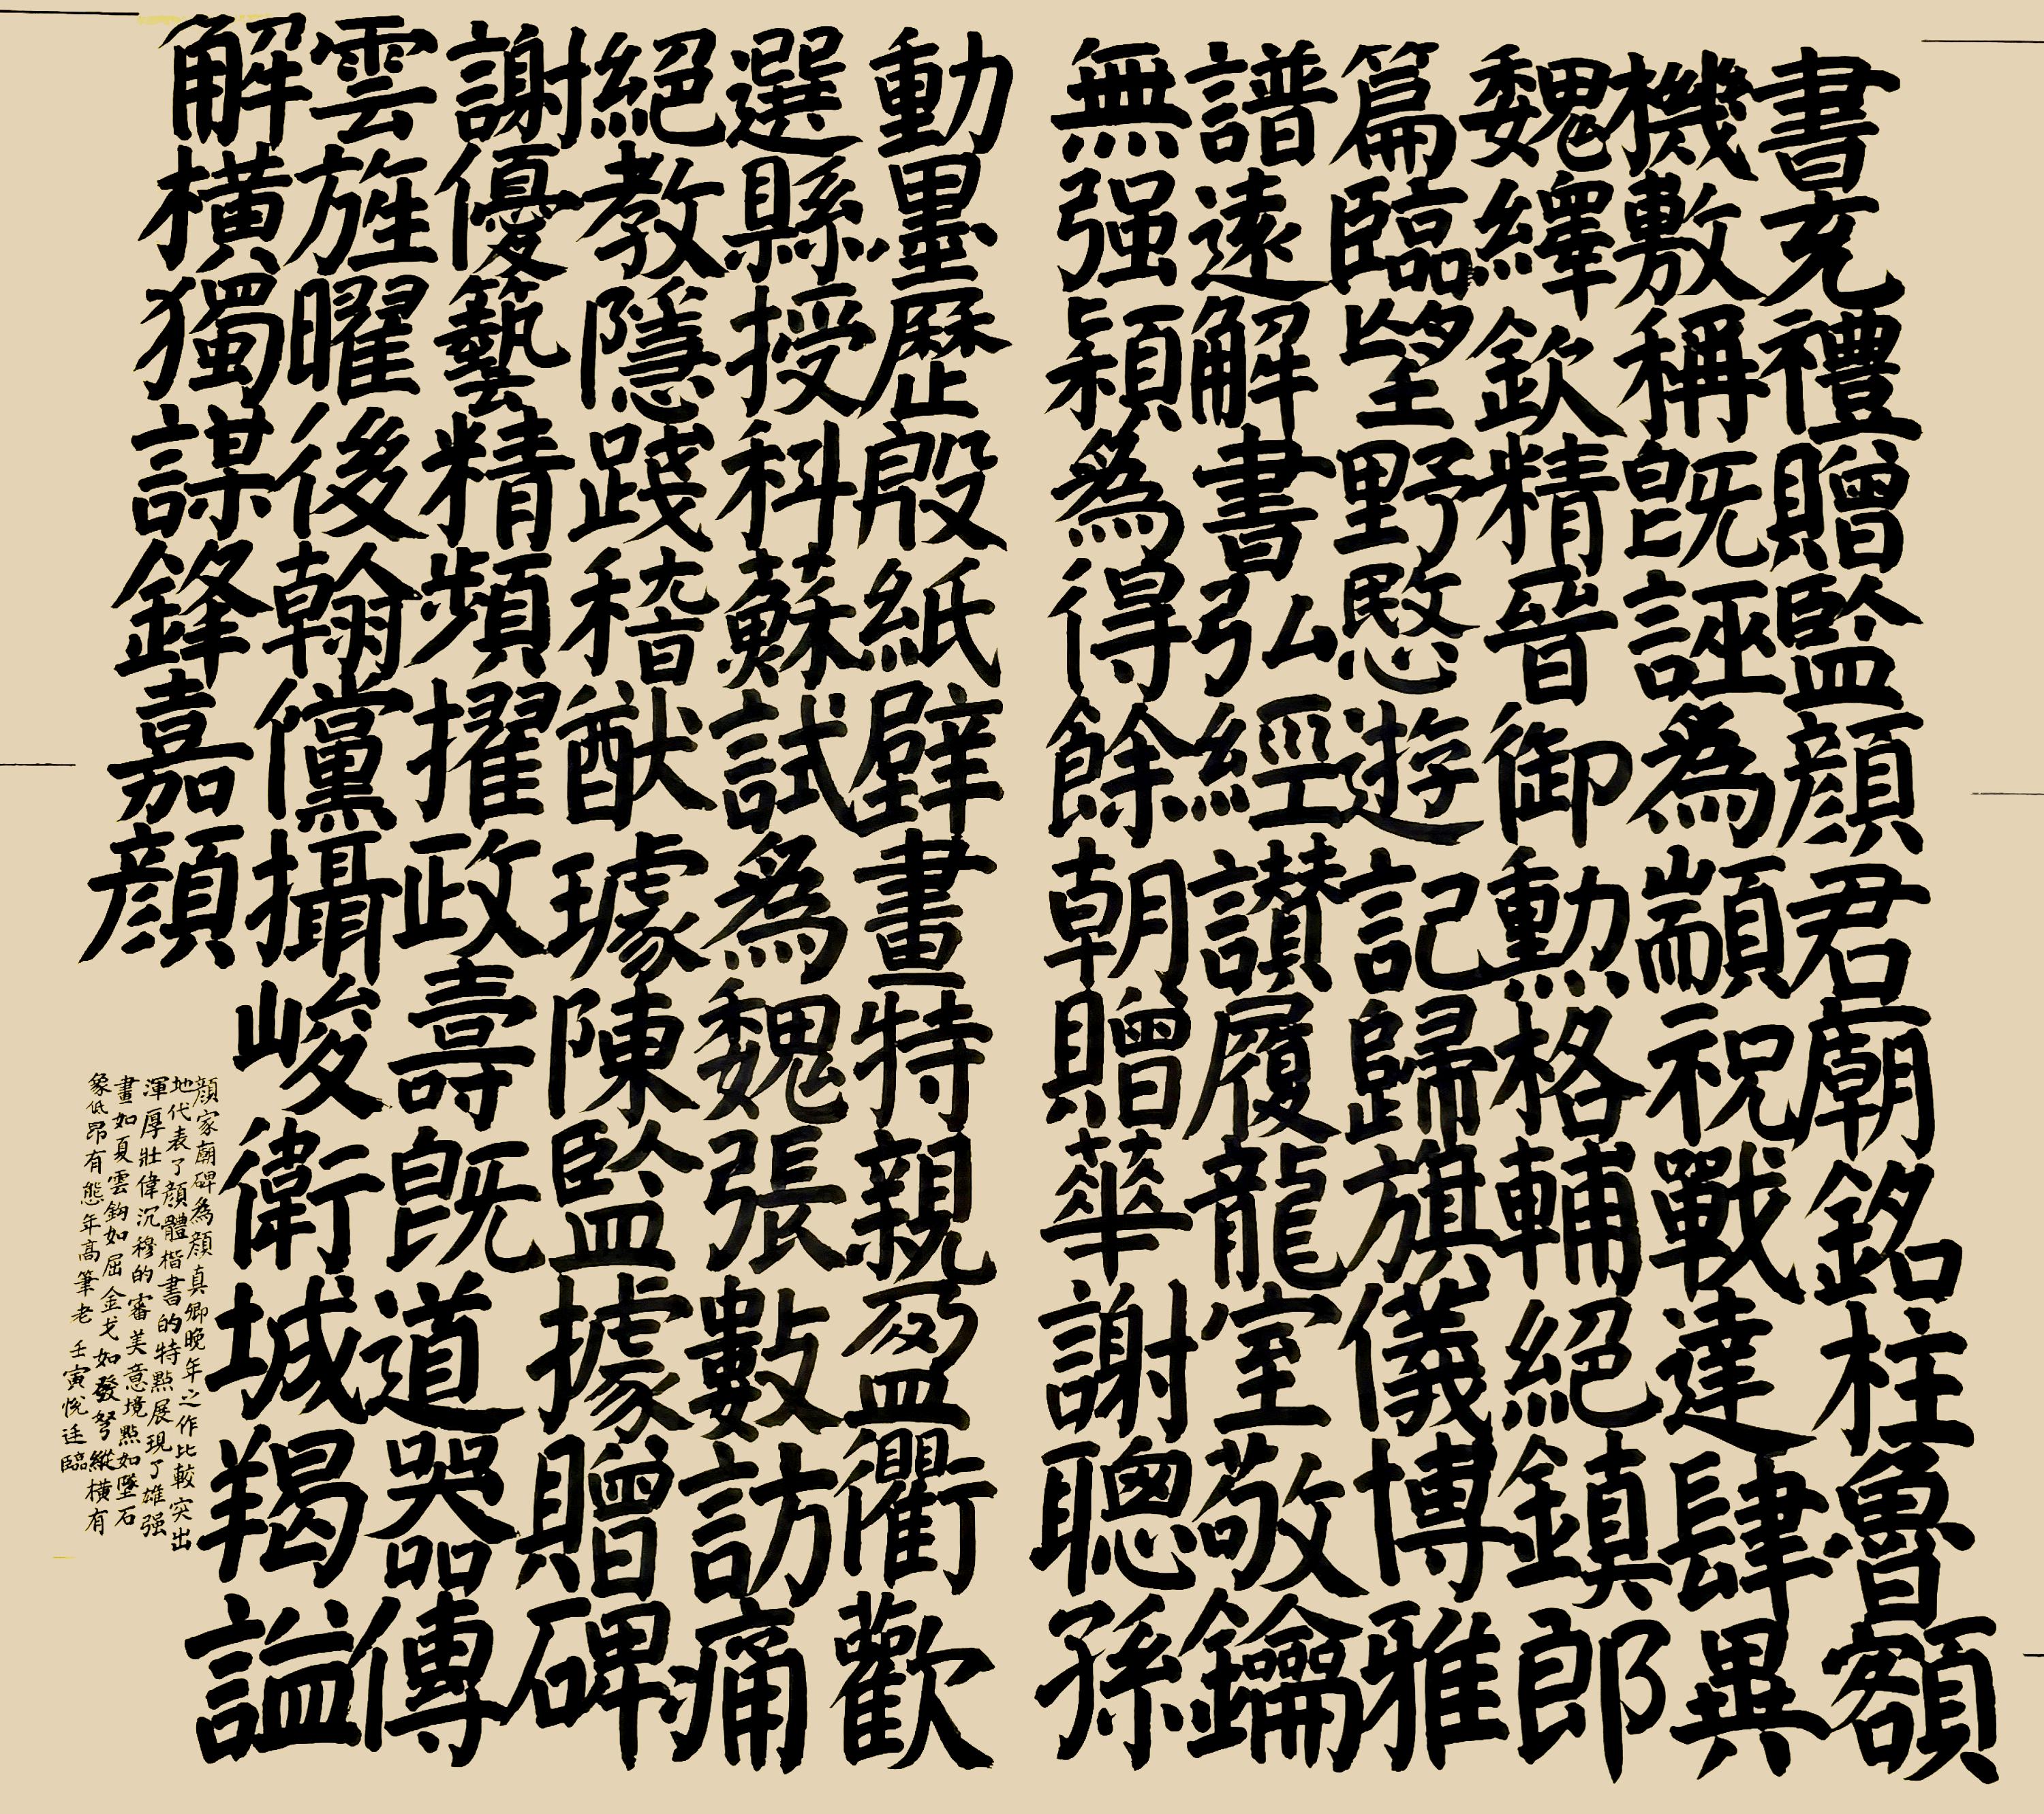 書充禮贈監顔君廟銘柱魯額
機敷稱既誣為顓祝戰達肆異
魏繹欽精晉御勲格輔絕鎮郎
篇臨望野愍遊記歸旗儀博雅
譜遠解書弘經讃履龍室敬鑰
無强穎為得餘朝贈華謝聰孫
動墨歷殷紙壁畫特親盈衢歡
選縣授科蘇試為魏張數訪痛
絕教隱踐稽猷璩陳監據贈碑
謝優藝精頻擢政壽既道器傳
雲旌曜後翰儻攝峻衛城羯謚
解橫獨謀鋒嘉顔
顔家廟碑為顔真卿晚年之作比較突出
地代表了顔體楷書的特點展現了雄强
渾厚壯偉沉穆的審美意境點如墜石
畫如夏雲鈎如屈金戈如發弩縱橫有
象低昂有態年高筆老 壬寅悅廷臨